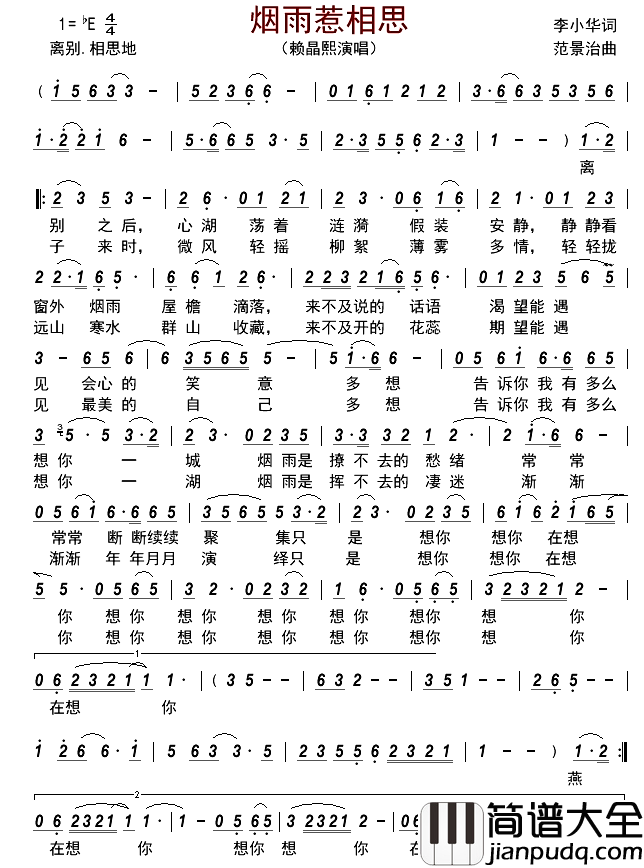 烟雨惹相思
1= ♭E 4/4
李小华词
离别. 相思地
(赖晶熙演唱)
范景治曲
( 1 5 6 3 3 - | 5 2 3 6 6 - | 0 1 6 1 2 1 2 | 3 · 6 6 3 5 3 5 6 |
1 · 2 2 1 6 - | 5 · 6 6 5 3 · 5 | 2 · 3 5 5 6 2 · 3 | 1 - - ) 1 · 2 |
离
2 3 5 3 - | 2 6 · 0 1 2 1 | 2 3 · 0 6 1 6 | 2 1 · 0 1 2 3 |
别 之后, 心湖 荡着 涟漪 假装 安静, 静静看
子 来时, 微风 轻摇 柳絮 薄雾 多情, 轻轻拢
2 2 · 1 6 5 · | 6 6 1 2 6 · | 2 2 3 2 1 6 5 6 · | 0 1 2 3 5 6 5 |
窗外 烟雨 屋檐 滴落, 来不及说的 话语 渴望能遇
远山 寒水 群山 收藏, 来不及开的 花蕊 期望能遇
3 - 6 5 6 | 6 3 5 6 5 5 - | 5 1 · 6 6 - | 0 5 6 1 6 5 6 5 |
见 会心的 笑 意 多想 告诉你我有多么
见 最美的 自 己 多想 告诉你我有多么
3 5 · 5 3 · 2 | 2 3 · 0 2 3 5 | 3 · 3 3 2 1 2 · | 2 1 · 6 6 - |
想你 一 城 烟雨是撩不去的愁绪 常 常
想你 一 湖 烟雨是挥不去的凄迷 渐 渐
0 5 6 1 6 · 6 6 6 | 3 5 6 5 5 3 · 2 | 2 3 · 0 2 3 5 | 6 1 6 2 1 6 5 |
常常 断断续续 聚 集只 是 想你 想你 在想
渐渐 年年月月 演 绎只 是 想你 想你 在想
5 5 · 0 5 6 5 | 3 2 · 0 2 3 2 | 1 6 · 0 5 6 5 | 3 2 3 2 1 2 - |
你 想你 想你 想你 想你 想你 想 你
你 想你 想你 想你 想你 想你 想 你
1
0 6 2 3 2 1 1 1 · | ( 3 5 - - | 6 6 3 2 - - | 3 5 1 - - | 2 6 5 - - |
在想 你
1 2 6 6 · 1 | 5 6 3 3 · 5 | 2 3 5 5 6 2 3 2 1 | 1 - - ) 1 · 2 :|
燕
2
在想 你 想你 想 想你 在想
简谱大全
jianpudq.com